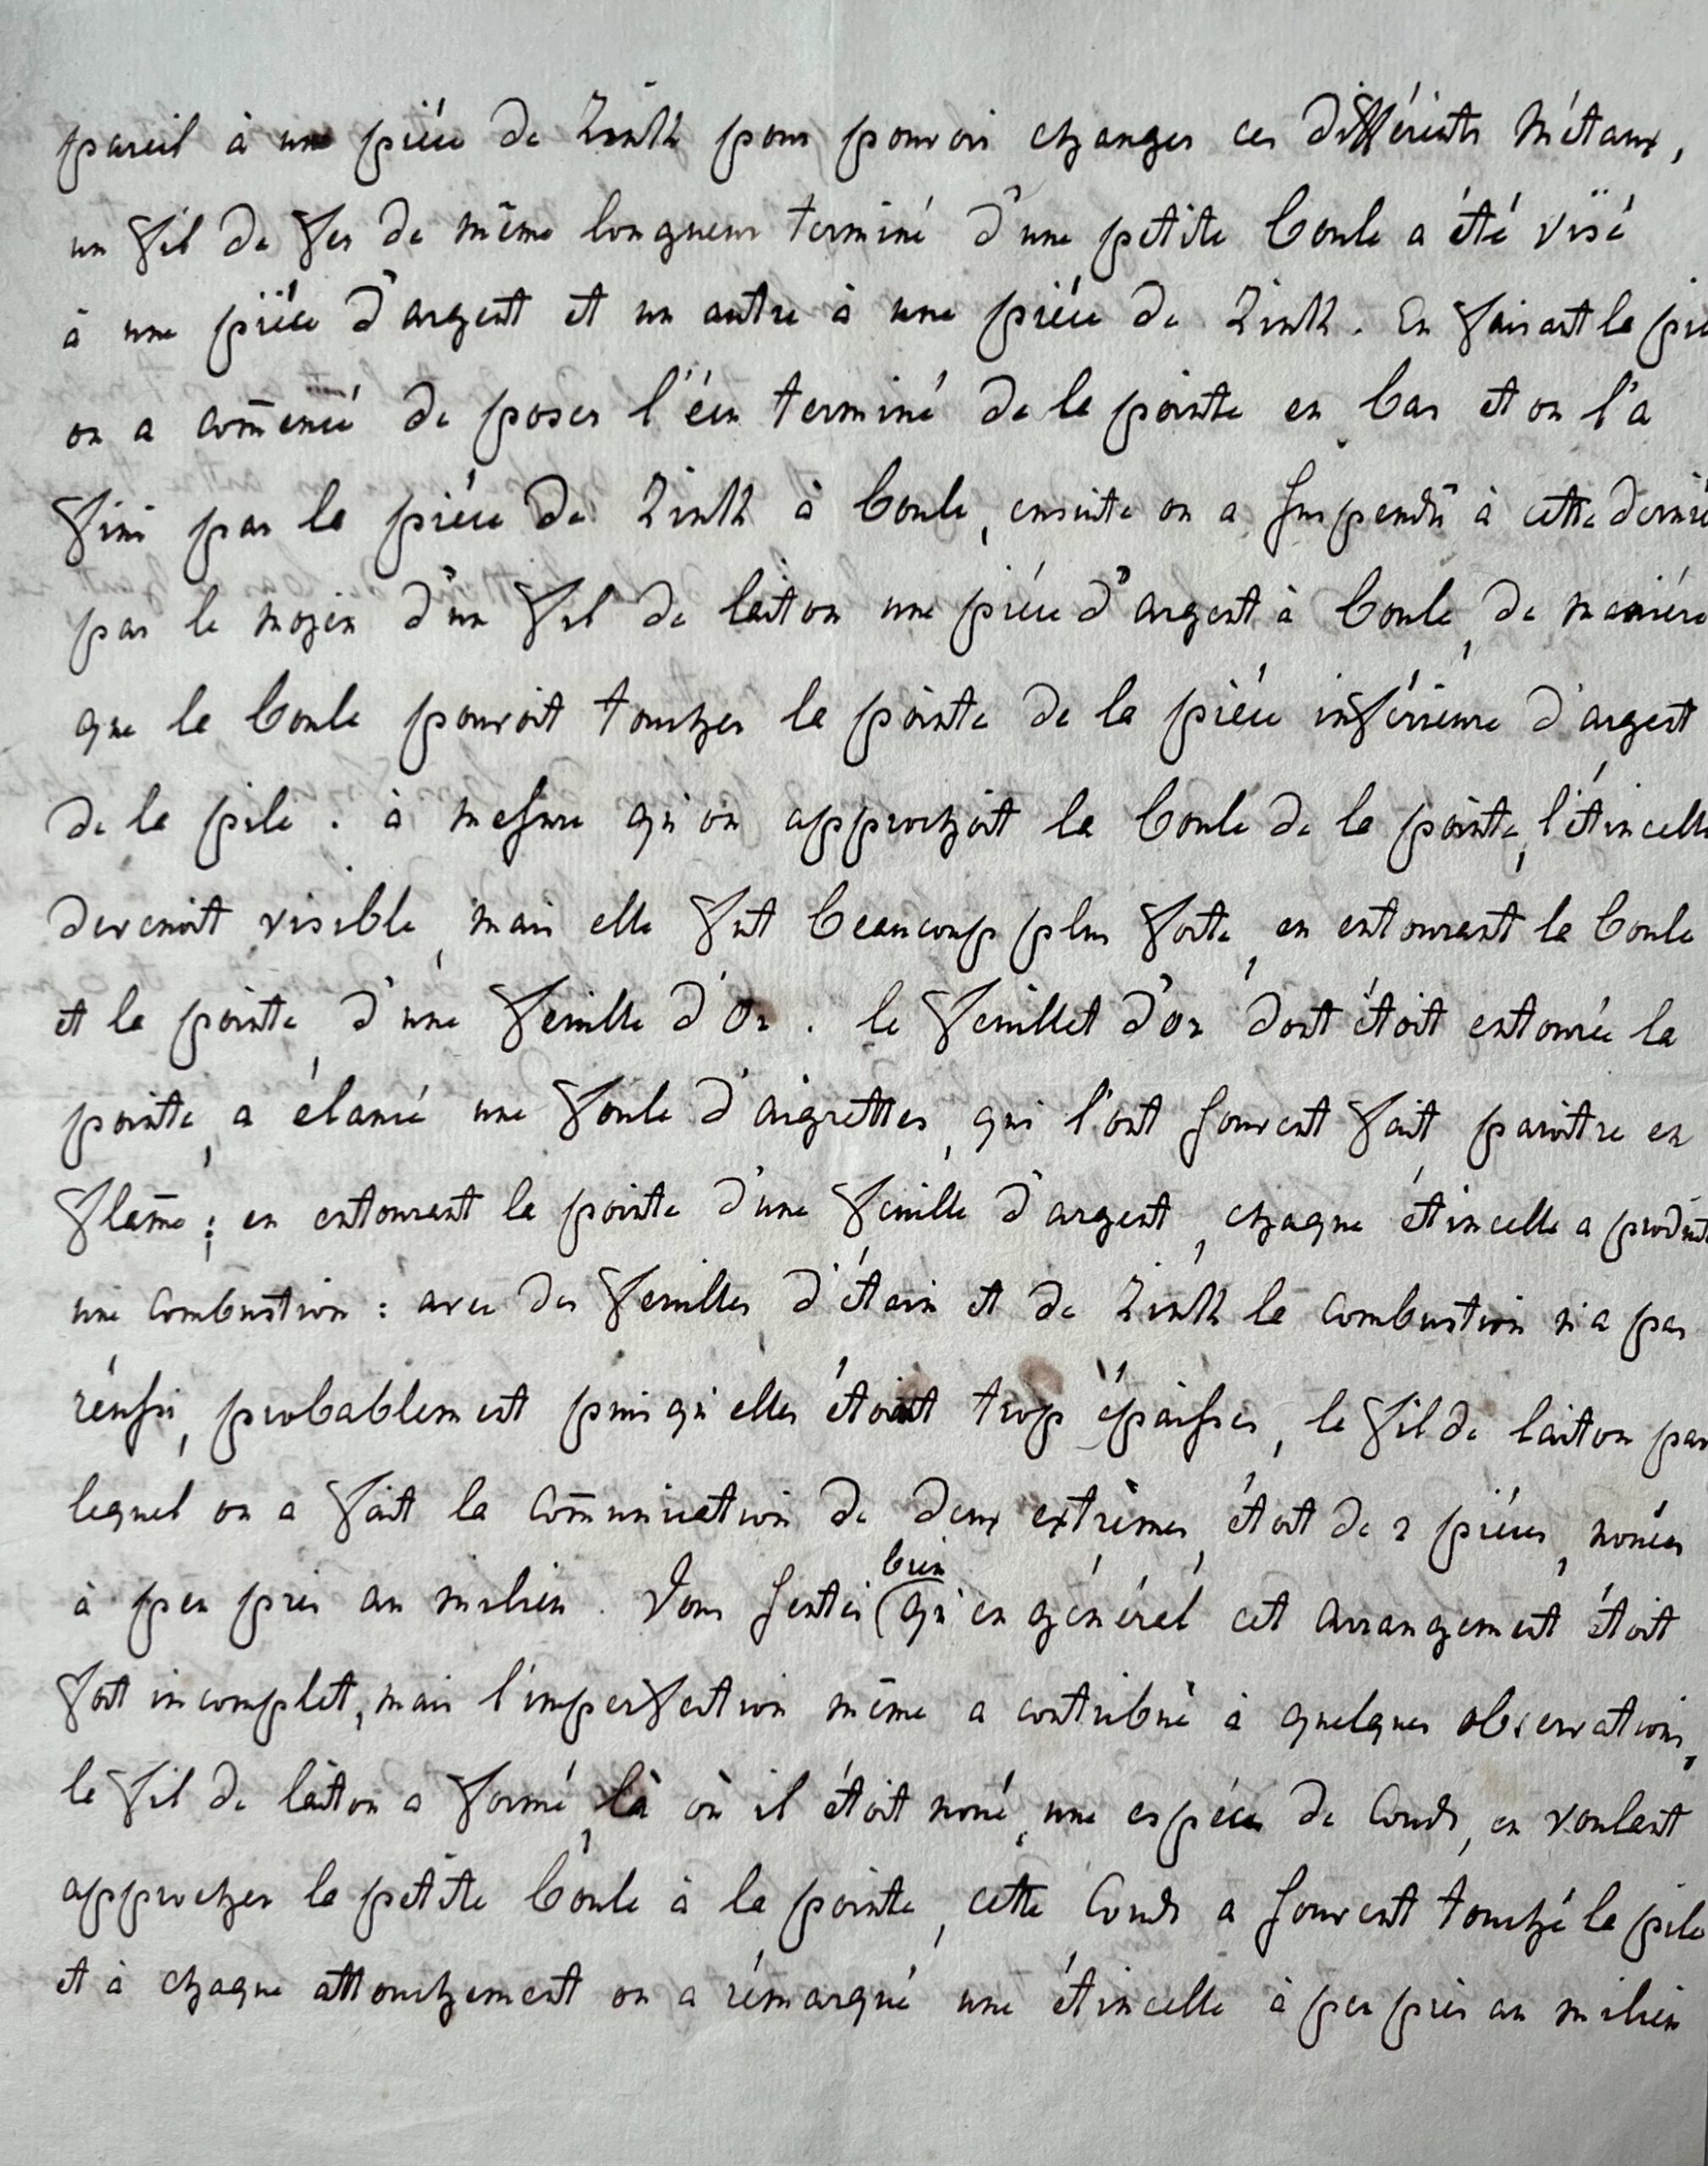 pareil à une piéce de Zinkk pour pouvoir changer ces différients Métaux,
un fil de fer de même longueur terminé d'une petite boule a été visé
à une piéce d'argent et un autre à une piéce de Zinkk. En faisant la pil
on a com̄encé de poser l'écu terminé de la pointe en bas et on l'a
fini par la piéce de Zinkk à boule, ensuite on a suspendû à cette derniè
par le moyen d'un fil de laiton une piéce d'argent à boule, de maniére
que la boule pouvoit toucher la pointe de la piéce inférieure d'argent
de la pile. à mesure qu'on approchoit la boule de la pointe, l'étincelle
devenoit visible, mais elle fut beaucoup plus forte, en entourant la boule
et la pointe d'une feuille d'Or. le feuillet d'or dont étoit entourée la
pointe, a élancé une foule d'aigrettes, qui l'ont souvent fait paroître en
flam̄e; en entourant la pointe d'une feuille d'argent, chaque étincelle a produit
une combustion: avec des feuilles d'étain et de Zinkk la combustion n'a pas
réussi, probablement puisqu'elles étoient trop épaisses, le fil de laiton par
lequel on a fait la com̄unication de deux extrèmes, étoit de 2 piéces, nouées
à peu près au milieu. Vous sentés bien qu'en général cet arrangement étoit
fort incomplet, mais l'imperfection même a contribué à quelques observations,
le fil de laiton a formé, là où il étoit noué, une espéce de Coude, en voulant
approcher la petite boule à la pointe, cette Coude a souvent touché la pile
et à chaque attouchement on a rémarqué une étincelle à peu près au milieu